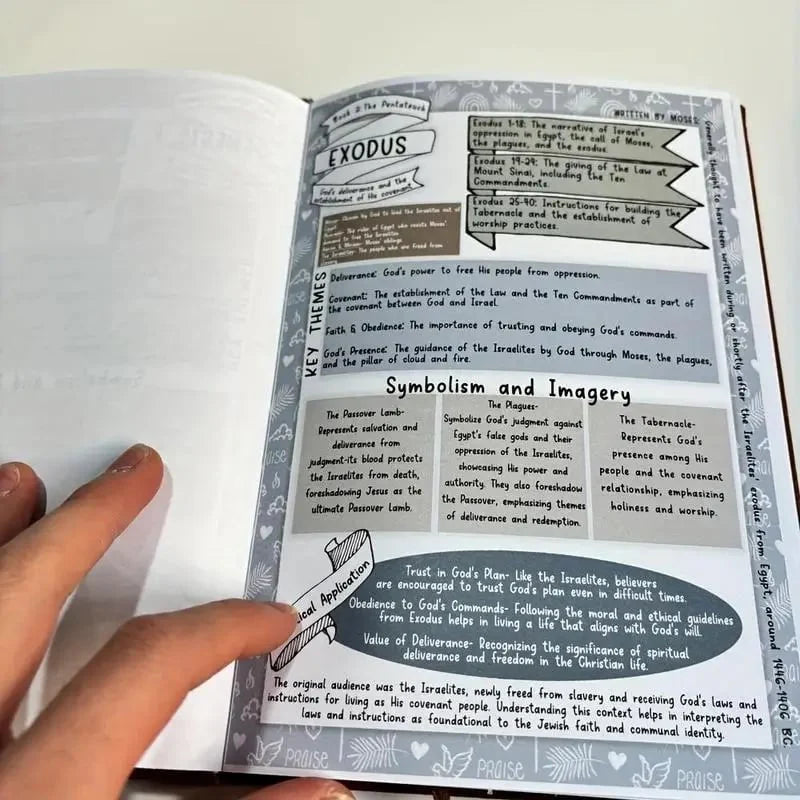 Book 2: The Pentateuch
EXODUS
God's deliverance and the
establishment of His covenant
WRITTEN BY MOSES:
Generally thought to have been written during or shortly after the Israelites' exodus from Egypt, around 1446-1406 BC
Exodus 1-18: The narrative of Israel's
oppression in Egypt, the call of Moses,
the plagues, and the exodus.
Exodus 19-24: The giving of the law at
Mount Sinai, including the Ten
Commandments.
Exodus 25-40: Instructions for building the
Tabernacle and the establishment of
worship practices.
Moses: Chosen by God to lead the Israelites out of
Egypt
Pharaoh: The ruler of Egypt who resists Moses'
demand to free the Israelites
Aaron & Miriam: Moses' siblings
The Israelites: The people who are freed from
slavery
KEY THEMES
Deliverance: God's power to free His people from oppression.
Covenant: The establishment of the Law and the Ten Commandments as part of
the covenant between God and Israel.
Faith & Obedience: The importance of trusting and obeying God's commands.
God's Presence: The guidance of the Israelites by God through Moses, the plagues,
and the pillar of cloud and fire.
Symbolism and Imagery
The Passover Lamb-
Represents salvation and
deliverance from
judgment-its blood protects
the Israelites from death,
foreshadowing Jesus as the
ultimate Passover Lamb.
The Plagues-
Symbolize God's judgment against
Egypt's false gods and their
oppression of the Israelites,
showcasing His power and
authority. They also foreshadow
the Passover, emphasizing themes
of deliverance and redemption.
The Tabernacle-
Represents God's
presence among His
people and the covenant
relationship, emphasizing
holiness and worship.
Application
Trust in God's Plan- Like the Israelites, believers
are encouraged to trust God's plan even in difficult times.
Obedience to God's Commands- Following the moral and ethical guidelines
from Exodus helps in living a life that aligns with God's will.
Value of Deliverance- Recognizing the significance of spiritual
deliverance and freedom in the Christian life.
The original audience was the Israelites, newly freed from slavery and receiving God's laws and
instructions for living as His covenant people. Understanding this context helps in interpreting the
laws and instructions as foundational to the Jewish faith and communal identity.
PRAISE
PRAISE
PRAISE